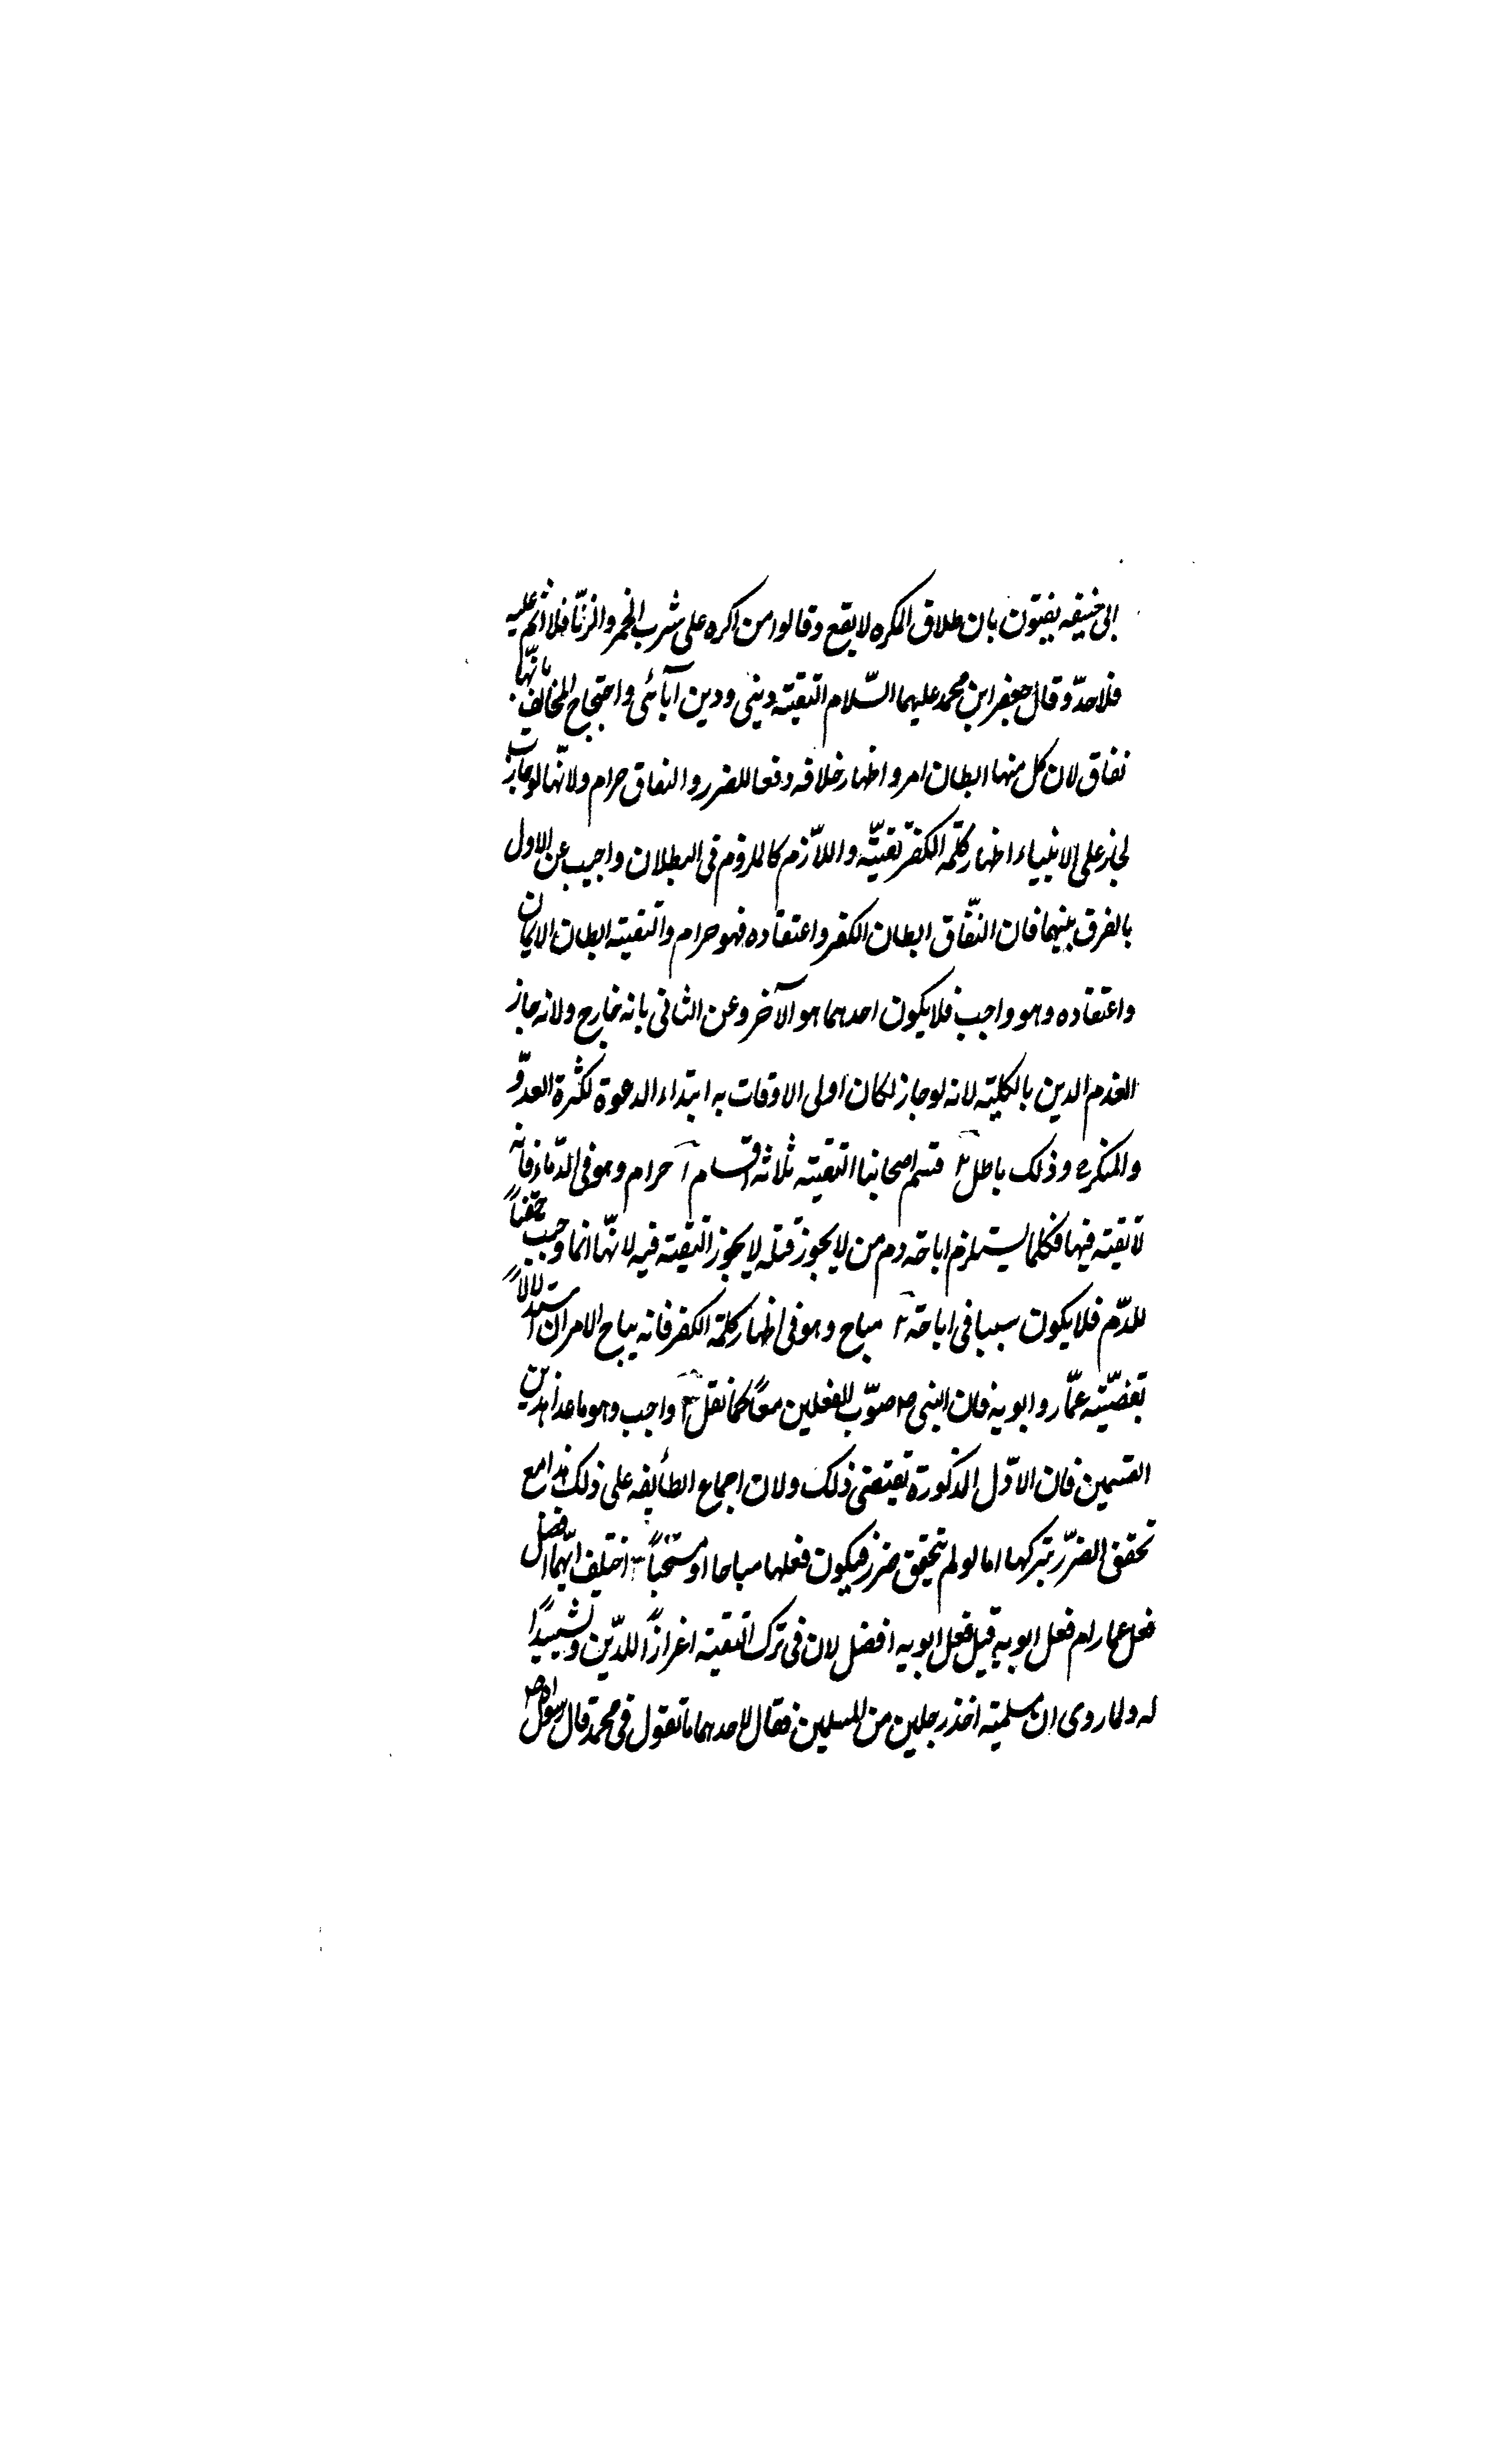 ابی حنیفه یفتون بان طلاق المکره لا یقع و قالوا من اکره علی شرب الخمر و الزنّا فلا اثم علیه
فلا حدّ و قال جعفر ابن محمد علیهما السّلام التقیته دینی و دین آبائی و احتجاج المخالف بانّها
نفاق لان کل منهما ابطان امر و اظهار خلافه دفعا للضرر و النفاق حرام و لانّها لو جازت
لجاز علی الانبیاء اظهار کلمة الکفر تقیّته و اللاّزم کالملزوم فی البطلان و اجیب عن الاول
بالفرق بینهما فان النّفاق ابطان الکفر و اعتقاده فهو حرام و التقیته ابطان الایمان
و اعتقاده و هو واجب فلا یکون احدهما هو الآخر و عن الثانی بانه خارج و لانه جاز
انعدم الدین بالکلیته لانه لو جاز لکان اولی الاوقات به ابتداء الدعوة لکثرة العدوّ
و المنکر و ذلک باطل ۲ قسم اصحابنا التقیته ثلاثه اقسام آ حرام و هو فی الدّماء فانّه
لا تقیته فیها فکلما یستلزم اباحة دم من لا یجوز قتله لا یجوز التقیته فیه لانّها انما وجبت حقناً
للدّم فلا یکون سببا فی اباحته ۲ مباح و هو فی اظهار کلمة الکفر فانه یباح الامران استدلالاً
بقضیّته عمّار و ابویه فان النبی ص صوّب للفعلین معاً کما نقل ۳ واجب و هو ما عدا هذین
القسمین فان الاوّل المذکورة تقتضی ذلک و لان اجماع الطائفه علی ذلک هذا مع
تحقق الضرّر بترکها اما لو لم یتحقق ضرر فیکون فعلها مباحا او مستحبّاً اختلف ایّهما افضل
فعل عمار ام فعل ابویه قیل فعل ابویه افضل لان فی ترک التقیته اعزازاً للدّین و تشییداً
له و لما روی ان مسلیمته اخذ رجلین من المسلمین فقال لاحدهما ما تقول فی محمد قال رسول الله ص